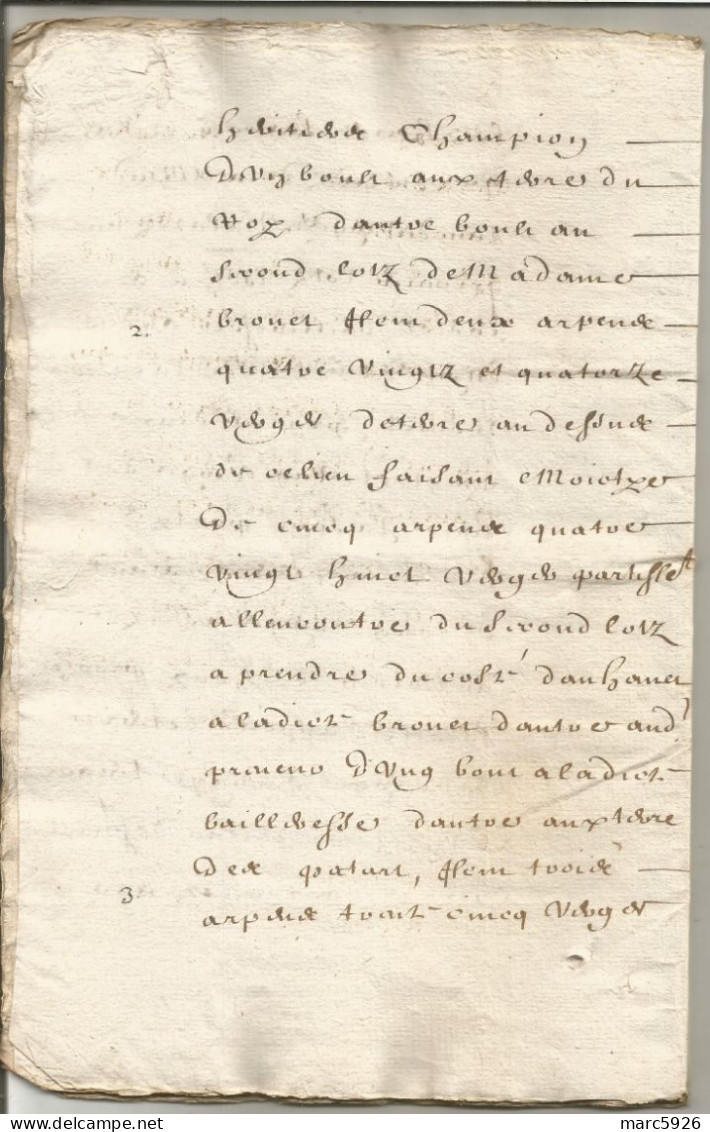 heritiers Champion
D'ung boult aux terre du
Roy d'autre boult au
second lotz de Madame
2. brouet Item deux arpens
quatre vingtz et quatorze
verges de terre au dessus
de ce lieu faisant Moictye
De cincq arpens quatre
vingt huict verges partisst
allencontre du second lotz
a prendre du costé d'auhauet
a ladicte brouet d'autre aud
D'ung bout a ladicte
baillresse d'autre aux terre
Des patart, Item trois
3. arpens trente cincq verges
marc5926